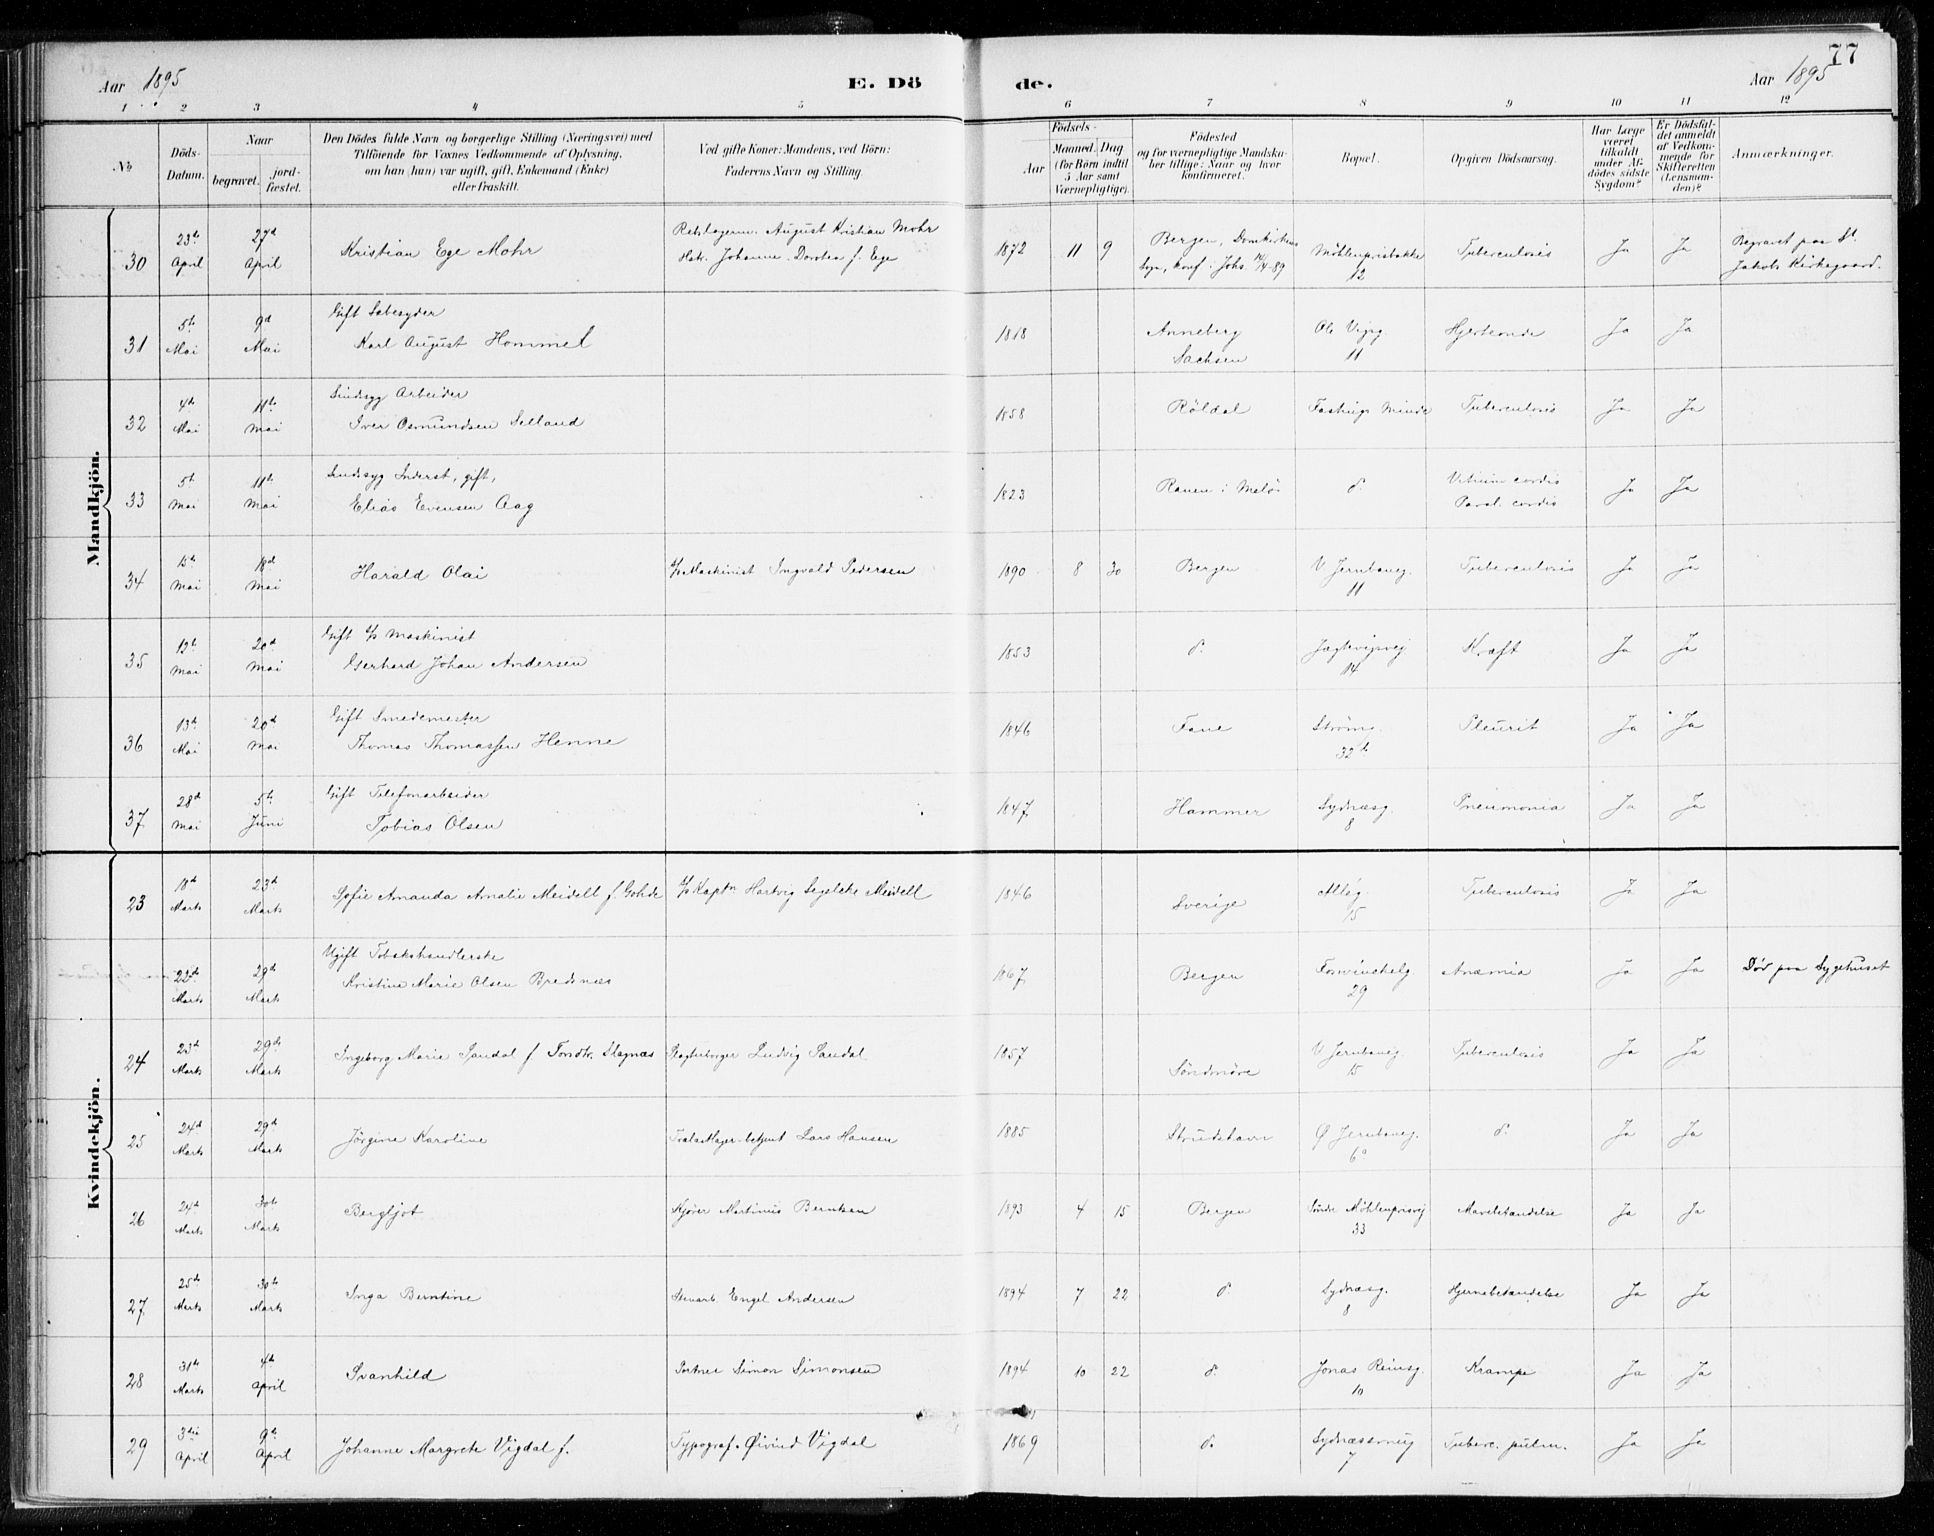 77
Aar 1895 E. Dö de. Aar 1895
1 2 3 4 5 6 7 8 9 10 11 12
No
Döds-Datum.
Naar
begravet.
jordfæstet.
Den Dödes fulde Navn og borgerlige Stilling (Næringsvei) med
Tilföiende for Voxnes Vedkommende af Oplysning,
om han (hun) var ugift, gift, Enkemand (Enke)
eller fraskilt.
Ved gifte Koner: Mandens, ved Börn:
Faderens Navn og Stilling.
Födsels-
Aar
Maaned. Dag
(for Börn indtil
5 Aar samt
Værnepligtige).
Födested
og for værnepligtige Mandskaber
tillige: Naar og hvor
konfirmeret.
Bopæl.
Opgiven Dödsaarsag.
Har Læge
været
tilkaldt
under Afdödes
sidste
Sygdom?
Er Dödsfaldet
anmeldt
af Vedkommende
for
Skifteretten
(Lensmanden)?
Anmærkninger.
Mandkjön.
30 23de April 27d April Kristian Ege Mohr August Kristian Mohr Johanne Dorotea f. Ege 1872 11 9 Bergen, Domkirkens Sogn, konf. i Johs. 14/4-89 Möhlenprisbakke 12 Tuberculosis Ja Ja Begravet paa St. Jakobs Kirkegaard.
31 5te Mai 9d Mai Gift Sæbesyder Karl August Hommel 1818 Anneberg Sachsen 11 Hjerteonde Ja Ja
32 4de Mai 11te Mai Sindsyg Arbeider Iver Osmundsen Selland 1858 Röldal Fastings Minde Tuberculosis Ja Ja
33 5te Mai 11te Mai Sindsyg Inderst, gift, Elias Evensen Aag 1823 Ranen i Melö d. Vitium cordis Paral. cordis Ja Ja
34 15de Mai 18d Mai Harald Olai Maskinist Ingvald Pedersen 1890 8 30 Bergen V Jernbaneg. 11 Tuberculosis Ja Ja
35 Mai 20d Mai Gift Maskinist Gerhard Johan Andersen 1853 d. 14 Kræft Ja Ja
36 13d Mai 20d Mai Gift Smedemester Thomas Thomassen Henne 1846 Fane Strömg. 32b Pleurit Ja Ja
37 28d Mai 5te Juni Gift Telefonarbeider Tobias Olsen 1847 Hammer Sydnæsg. 8 Pneumonia Ja Ja
Kvindekjön.
23 18d Marts 23d Marts Sofie Amanda Amalie Meidell f. Gohde Kaptn Hartvig Segelcke Meidell 1846 Sverige Alleg. 15 Tuberculosis Ja Ja
23d Marts 29d Marts Ugift Tobakshandlerske Kristine Marie Olsen Bredsnæs 1867 Bergen Fosvinckelg. 29 Anæmia Ja Ja Död paa Sygehuset
24 23d Marts 29d Marts Ingeborg Marie Sandal f. Slagnæs Ludvig Sandal 1857 Söndmöre V Jernbaneg. 15 Tuberculosis Ja Ja
25 24d Marts 29d Marts Jörgine Karoline Lars Hansen 1885 Strudshavn Ø Jernbaneg. 6a d. Ja Ja
26 24d Marts 30te Marts Bergljot Kjörer Martinus Berntsen 1893 4 15 Bergen Söndre Möhlenprisvei 33 Mavebetændelse Ja Ja
27 25de Marts 30te Marts Inga Berntine Stenarb. Engel Andersen 1894 7 22 d. Sydnæsg. 8 Hjernebetændelse Ja Ja
28 31te Marts 4de April Svanhild Portner Simon Simonsen 1894 10 22 d. Jonas Reinsg. 10 Krampe Ja Ja
29 3die April 9de April Johanne Margrete Vigdal f. Typograf Øivind Vigdal 1869 d. 7 Tuberc. pulm. Ja Ja